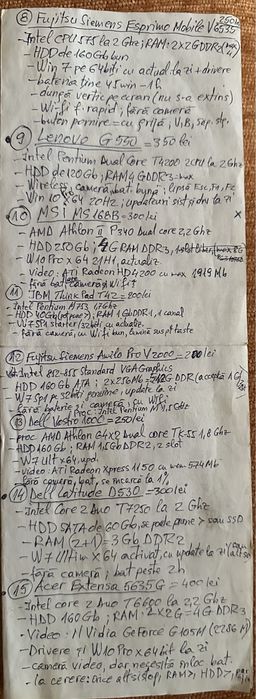 ⑧ Fujitsu Siemens Esprimo Mobile V6535 250lei
- Intel CPU 575 la 2 Ghz; RAM: 2x2GDDR2 (max 4)
- HDD de 160Gb bun
- Win 7 pe 64biti cu actual. la zi + drivere
- bateria ține 45min - 1h
- dungă vertic. pe ecran (nu s-a extins)
- Wi-fi f. rapid; fără cameră
- buton pornire = cu grijă
⑨ Lenovo G550 = 350 lei
- Intel Pentium Dual Core T4200 2CPU la 2Ghz
- HDD de 120Gb; RAM 4GDDR3=max
- Wireless, camera, bat. bună; lipsă Esc, F1, F2
- Win 10 x64 20H2; updateuri sist. și drv la zi
⑩ MSI MS 16BB = 300 lei
- AMD Athlon II P340 Dual core 2,2Ghz
- HDD 250Gb; 4G RAM DDR3, 1 slot liber
- W10Pro x64 21H1, actualiz.
- Video: ATI Radeon HD4200 cu max 1919 Mb
- fără bat.
⑪ IBM ThinkPad T42 = 200 lei
- Intel Pentium
- HDD 40Gb; RAM 1GbDDR1, 1 canal
- W7 SP1 starter/32biți cu actualiz.
- Fără cameră, cu Wifi bun,
⑫ Fujitsu Siemens Amilo Pro V2000 = 200 lei
Intel 852-855 Standard VGA Graphics
- HDD 160Gb ATA; 2x256Mb=512 DDR (acceptă 1G)
- W7 SP1 pe 32biți genuine, update la zi
- fără baterie și cameră, cu Wifi
- Proc. Intel Pentium M 1,5Ghz
⑬ Dell Vostro 1000 = 250 lei
- proc. AMD Athlon 64x2 dual core TK-55 1,8 Ghz
- HDD 160Gb; RAM 1,5Gb DDR2, 2 slot
- W7 Ult x64, upd.
- video: ATI Radeon Xpress 1150 cu mem 574Mb
- fără cameră, bat. se încarcă la 1%
⑭ Dell Latitude D530 = 300 lei
- Intel Core 2 Duo T7250 la 2 Ghz
- HDD SATA de 60Gb, se poate pune > sau SSD
- RAM (2+1) = 3 Gb DDR2
- W7 Ultim x64 activat, cu update la zi
- fără cameră; bat. peste 2h
⑮ Acer Extensa 5635G = 400 lei
- Intel core 2 Duo T6600 la 2,2 Ghz
- HDD 160Gb; RAM: 2x2G = 4G DDR3
- Video: NVidia GeForce G105M (2286 M)
- Drivere și W10Pro x64bit la zi
- cameră video, dar necesită înloc. bat.
- la cerere: orice alt sist. op, RAM>, HDD>,